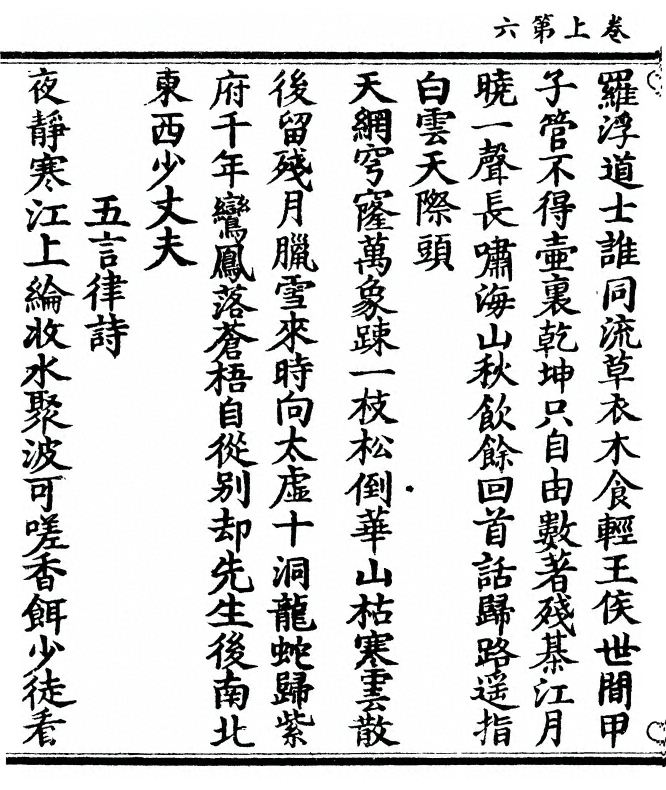 卷上第六
羅浮道士誰同流草衣木食輕王侯世間甲
子管不得壺裏乾坤只自由數著殘棊江月
曉一聲長嘯海山秋飲餘回首話歸路遥指
白雲天際頭
天網穹窿萬象踈一枝松倒華山枯寒雲散
後留殘月臘雪來時向太虛十洞龍蛇歸紫
府千年鸞鳳落蒼梧自從别却先生後南北
東西少丈夫
五言律詩
夜靜寒江上綸收水聚波可嗟香餌少徒看